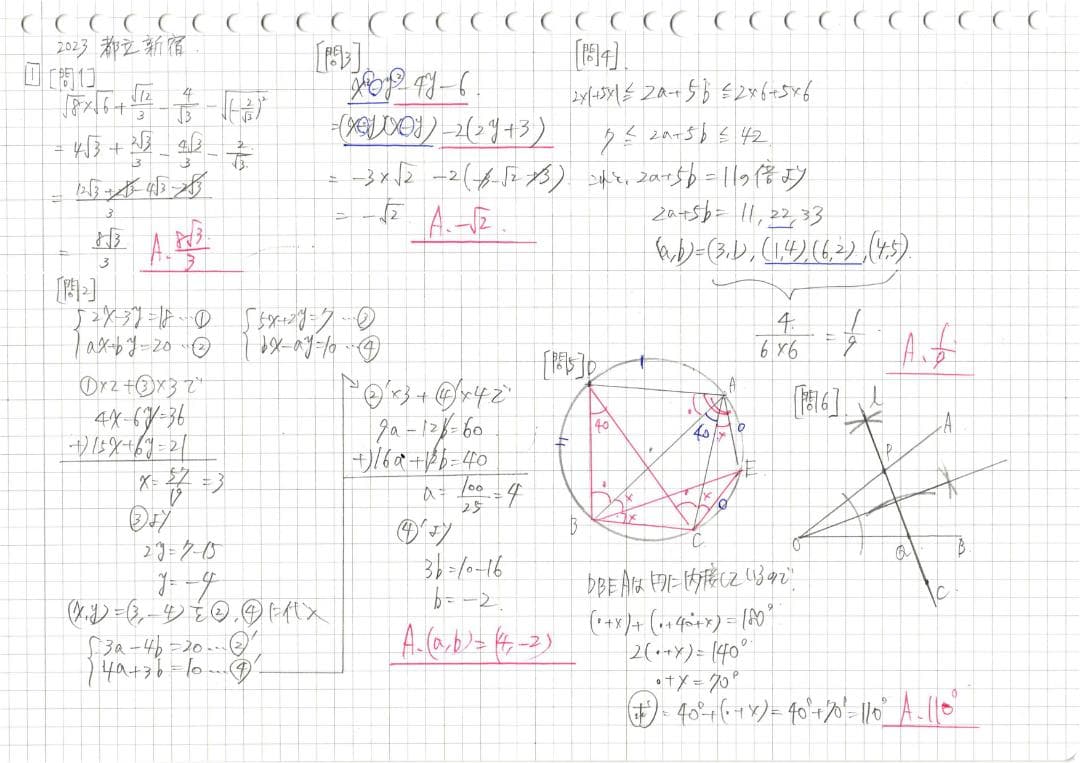 2023 都立新宿.
1 [問1]
√8×√6+√12/3-4/√3-√(-2/√3)²
=4√3+2√3/3-4√3/3-2/√3
=(12√3+2√3-4√3-2√3)/3
=8√3/3 A. 8√3/3
[問2]
{2x-3y=18…①
ax+by=20…②
{5x+2y=7…③
bx-ay=10…④
①×2+③×3で
4x-6y=36
+)15x+6y=21
x=57/19=3
③より
2y=7-15
y=-4
(x,y)=(3,-4)を②,④に代入
{3a-4b=20…②'
4a+3b=10…④'
②'×3+④'×4で
9a-12b=60
+)16a+12b=40
a=100/25=4
④'より
3b=10-16
b=-2
A.(a,b)=(4,-2)
[問3]
x²-y²-4y-6
=(x+y)(x-y)-2(2y+3)
=-3×√2-2(-3-√2+3)
=-√2 A.-√2
[問4]
2×1+5×1≦2a+5b≦2×6+5×6
7≦2a+5b≦42
これと、2a+5b=11の倍より
2a+5b=11,22,33
(a,b)=(3,1),(1,4),(6,2),(4,5)
4/6×6=1/9 A.1/9
[問5]
D
A
40
40
E
B
C
DBEAは円に内接しているので
(・+×)+(・+40+×)=180°
2(・+×)=140°
・+×=70°
求=40°+(・+×)=40°+70°=110° A.110°
[問6]
l
A
P
O
Q
B
C